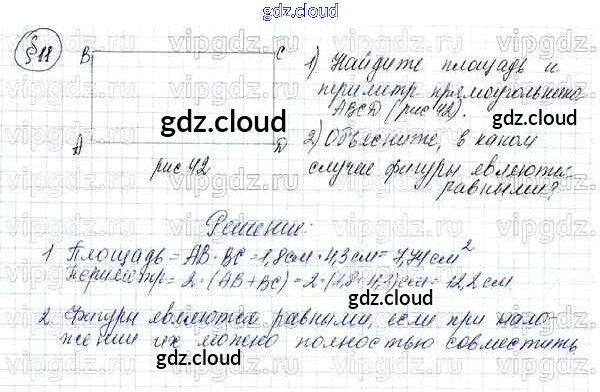 gdz.cloud
§11
B C
A D
рис 42
1) Найдите площадь и
периметр прямоугольника
ABCD (рис 42).
2) Объясните, в каком
случае фигуры являются
равными?
gdz.cloud
gdz.cloud
Решение:
1 Площадь = AB · BC = 1,8 см · 4,3 см = 7,74 см²
периметр = 2 · (AB + BC) = 2 · (1,8 + 4,3) см = 12,2 см
gdz.cloud
2 Фигуры являются равными, если при нало-
жении их можно полностью совместить
gdz.cloud
vipgdz.net